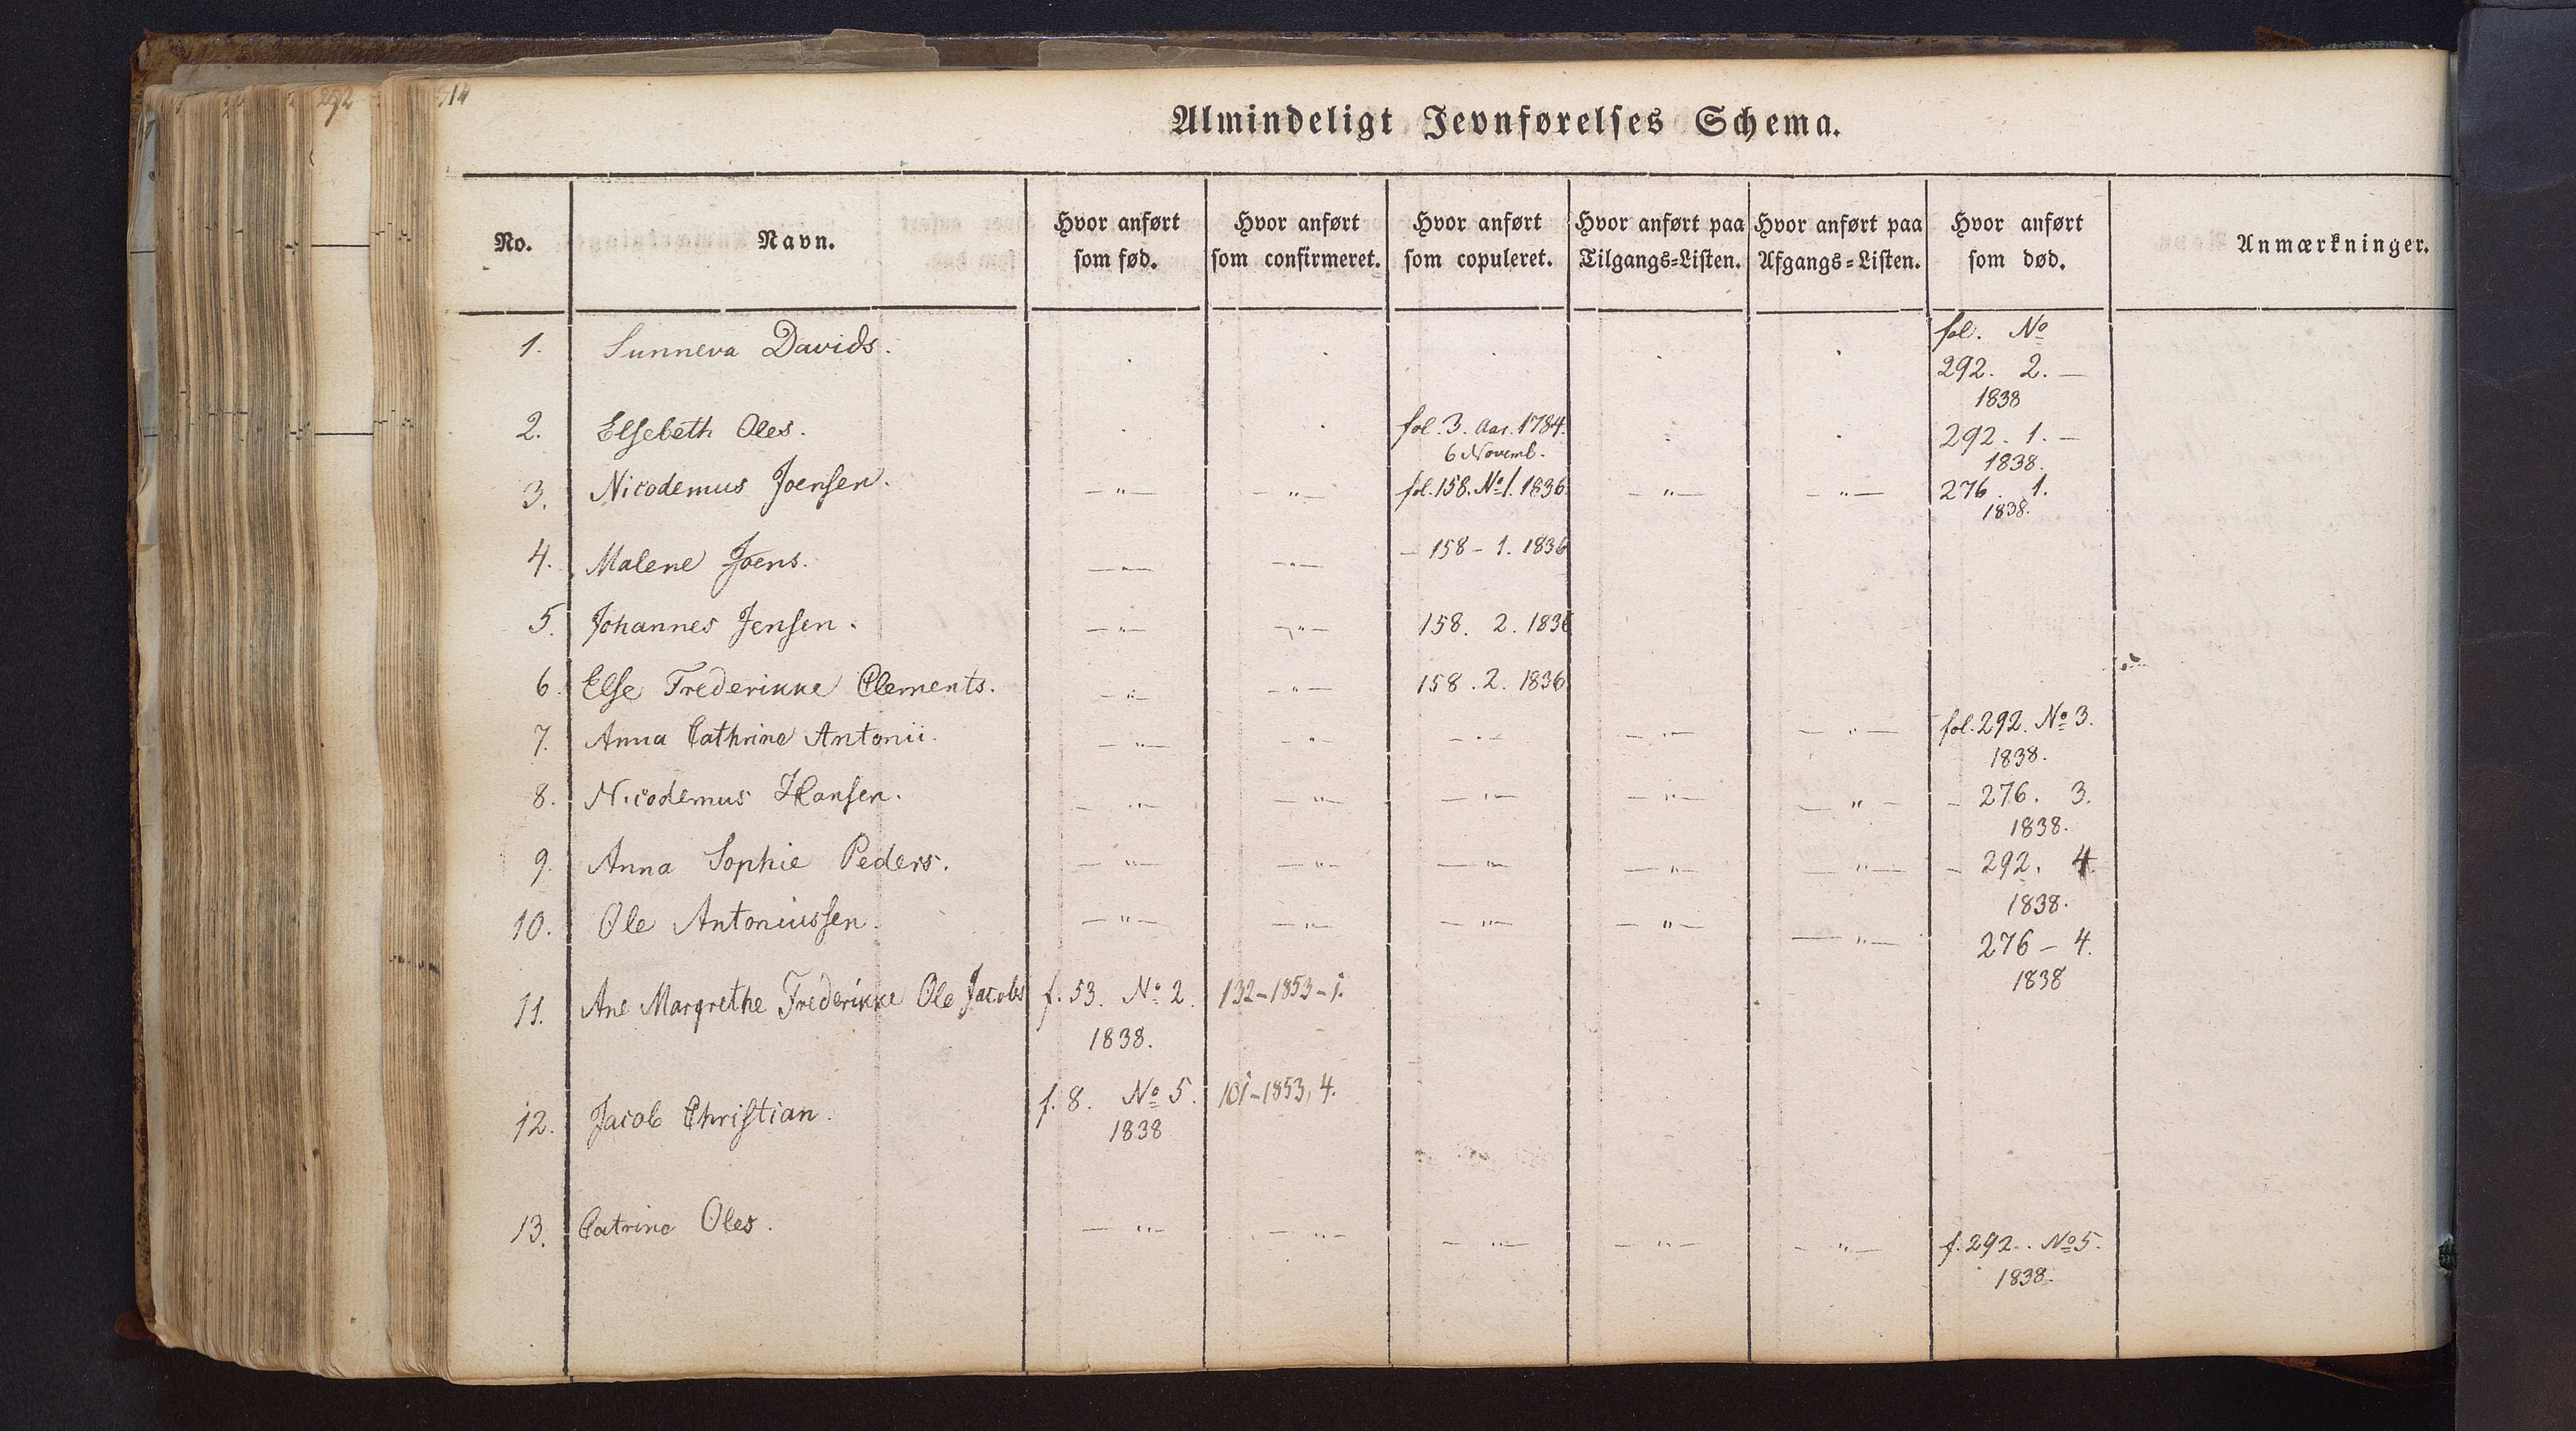 514
292
Almindeligt Jevnførelses Schema.
No.
Navn.
Hvor anført
som fød.
Hvor anført
som confirmeret.
Hvor anført
som copuleret.
Hvor anført paa
Tilgangs=Listen.
Hvor anført paa
Afgangs=Listen.
Hvor anført
som død.
Anmærkninger.
1. Sunneva Davids. fol. No
292. 2. —
1838
2. Elsebeth Oles. fol. 3. Aar. 1784. 292. 1. —
6 Novemb. 1838.
3. Nicodemus Joensen. — " — — " — fol. 158. No 1. 1836. — " — — " — 276. 1.
1838.
4. Malene Joens. — " — — " — — 158 – 1. 1836
5. Johannes Jensen. — " — — " — 158. 2. 1836
6. Else Frederikke Clements. — " — — " — 158. 2. 1836
7. Anna Cathrine Antonii. — " — — " — — " — — " — — " — fol. 292. No 3.
1838.
8. Nicodemus Hansen. — " — — " — — " — — " — — " — – 276. 3.
1838.
9. Anna Sophie Peders. — " — — " — — " — — " — — " — – 292. 4.
1838.
10. Ole Antoniussen. — " — — " — — " — — " — — " — 276 – 4.
1838
11. Ane Margrethe Frederikke Ole Jacobs f. 53. No 2. 132–1853–1.
1838.
12. Jacob Christian. f. 8. No 5. 101–1853, 4.
1838
13. Catrine Oles. — " — — " — — " — — " — — " — f. 292. No 5.
1838.